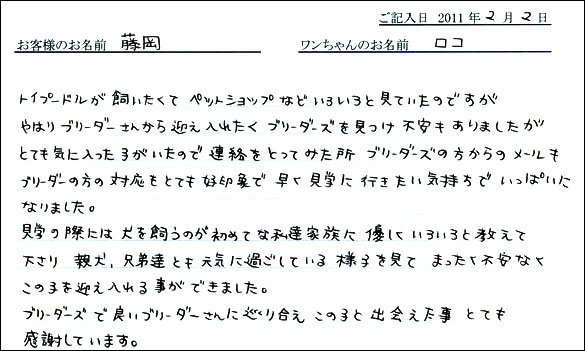 ご記入日 2011年2月2日
お客様のお名前 藤岡 ワンちゃんのお名前 ロコ
トイプードルが飼いたくてペットショップなどいろいろと見ていたのですが
やはりブリーダーさんから迎え入れたくブリーダーズを見つけ不安もありましたが
とても気に入った子がいたので連絡をとってみた所ブリーダーズの方からのメールも
ブリーダーの方の対応をとても好印象で早く見学に行きたい気持ちでいっぱいに
なりました。
見学の際には犬を飼うのが初めてな私達家族に優しくいろいろと教えて
下さり親犬、兄弟達とも元気に過ごしている様子を見てまったく不安なく
この子を迎え入れる事ができました。
ブリーダーズで良いブリーダーさんに巡り合えこの子と出会えた事とても
感謝しています。